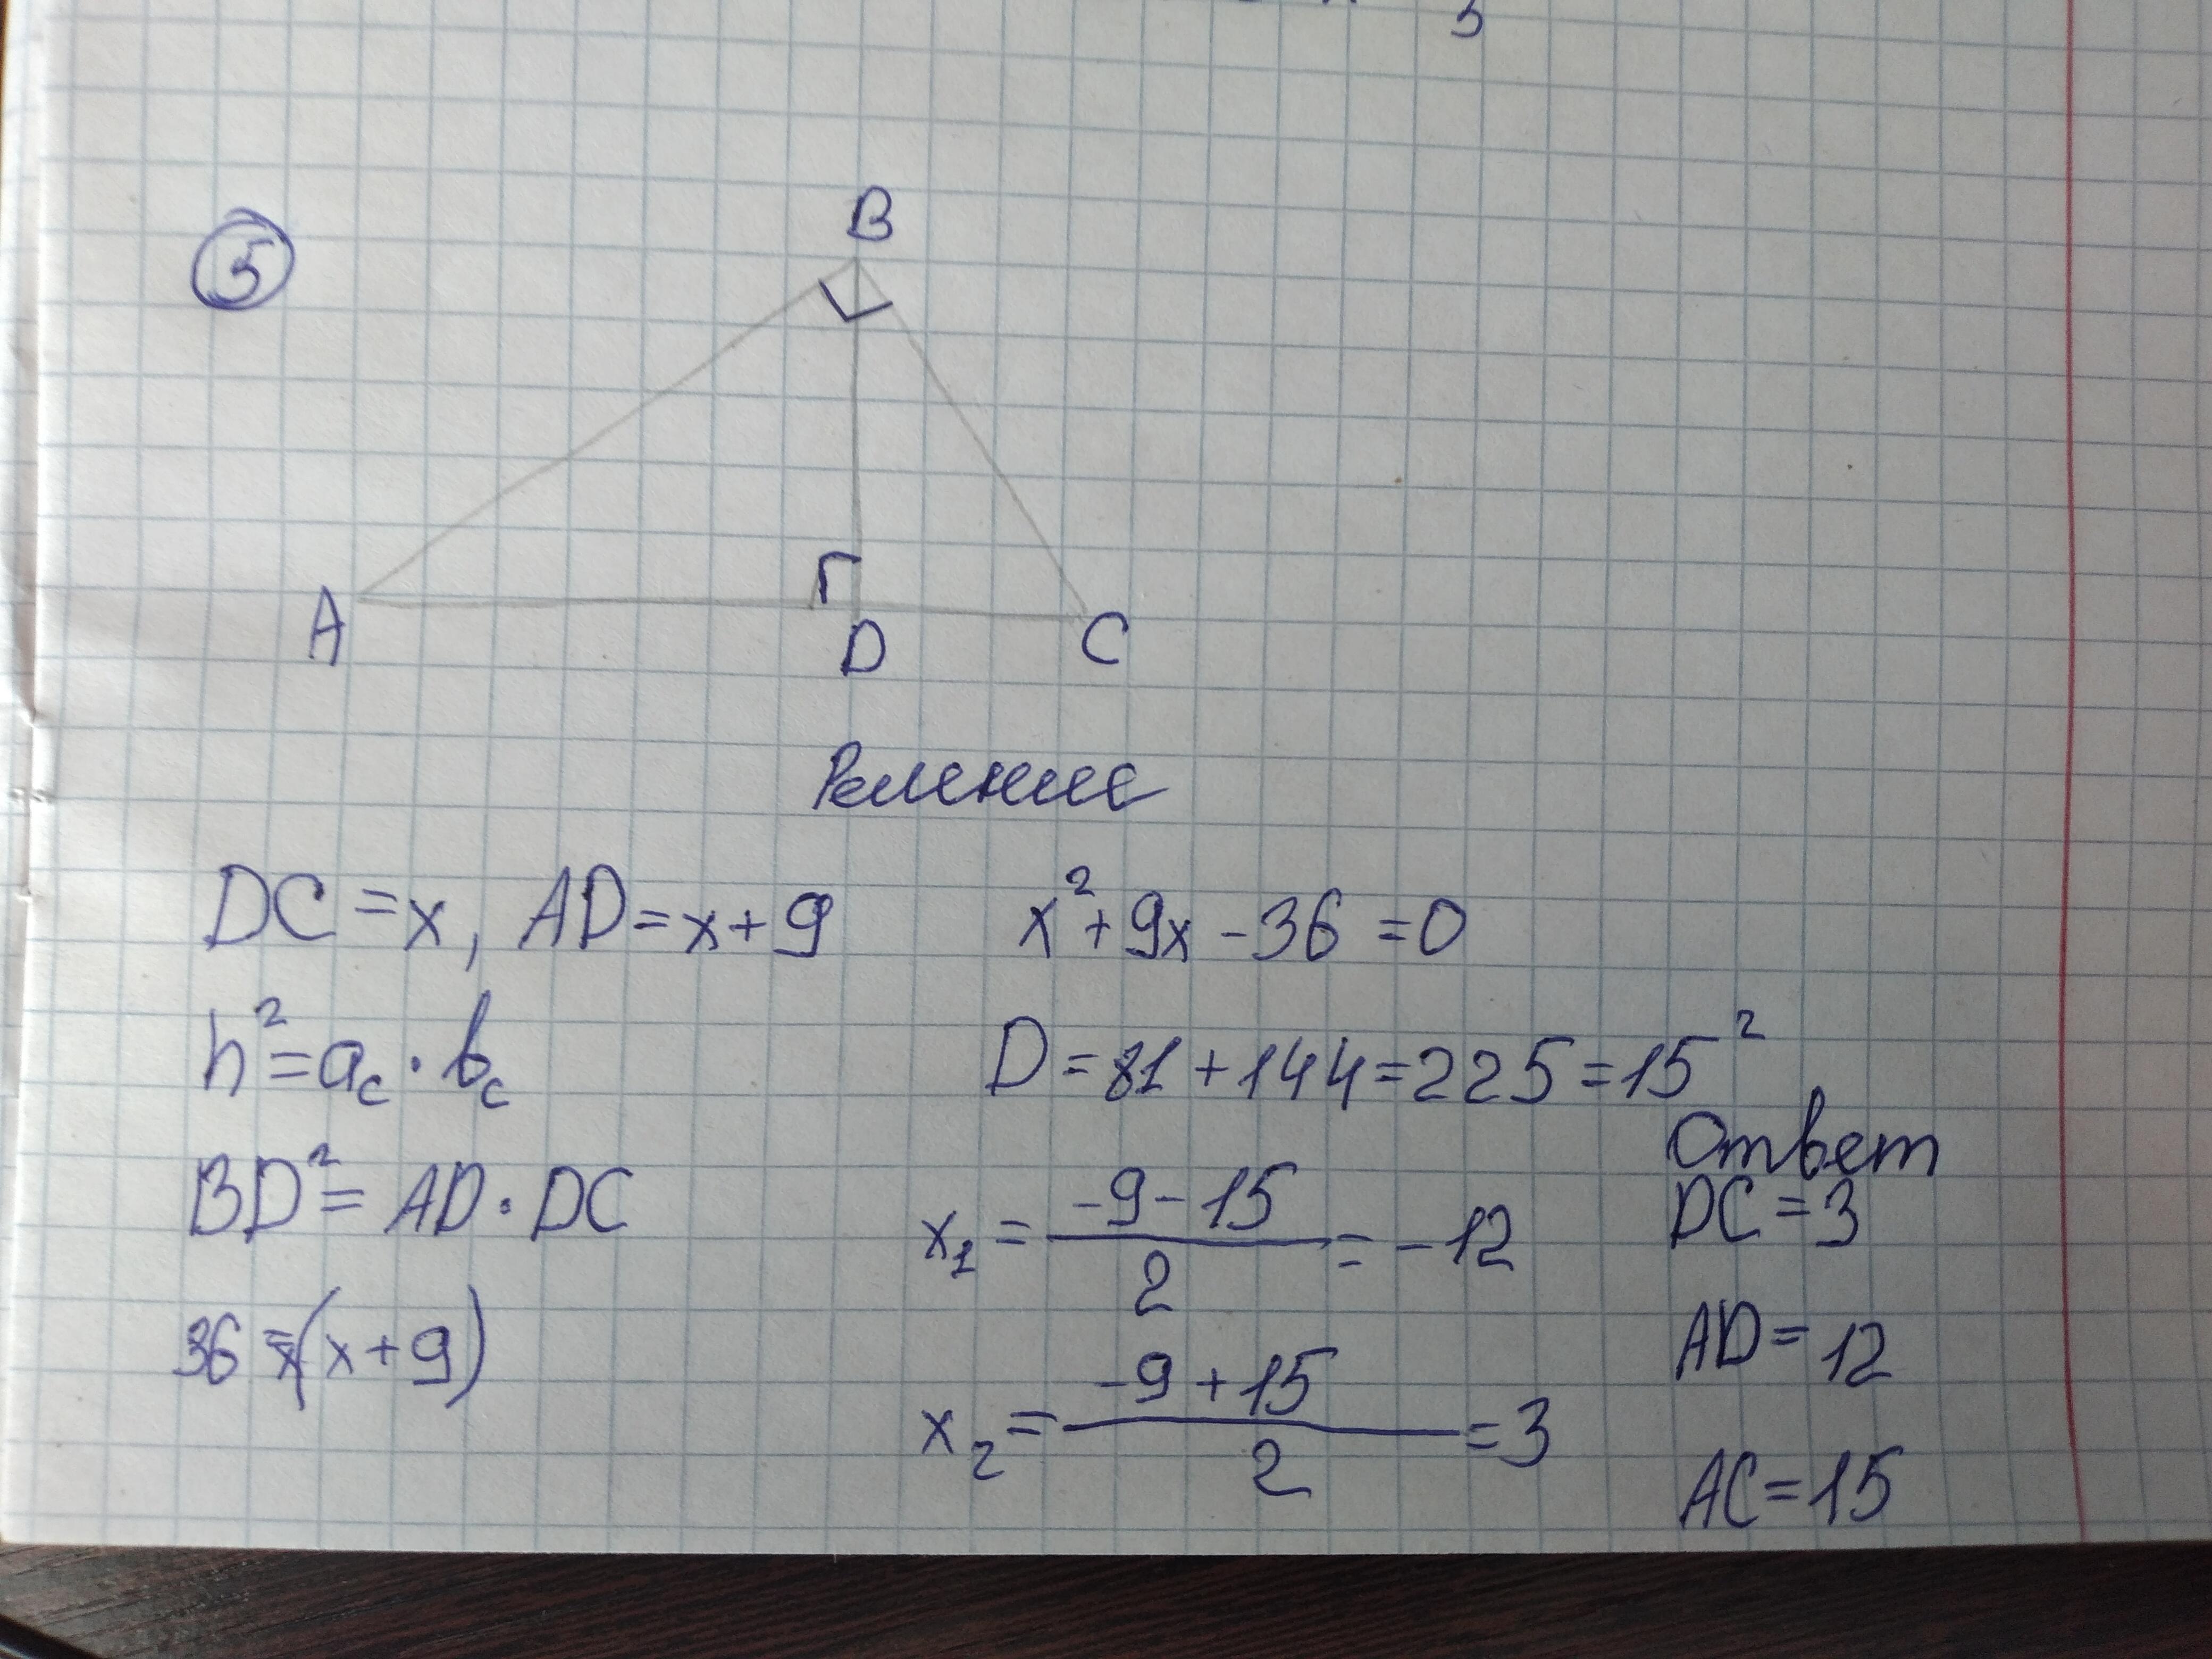 3
5
B
A
D
C
Решение
DC = x, AD = x + 9
h² = a_c · b_c
BD² = AD · DC
36 = x(x + 9)
x² + 9x - 36 = 0
D = 81 + 144 = 225 = 15²
x₁ = (-9 - 15)/2 = -12
x₂ = (-9 + 15)/2 = 3
Ответ
DC = 3
AD = 12
AC = 15